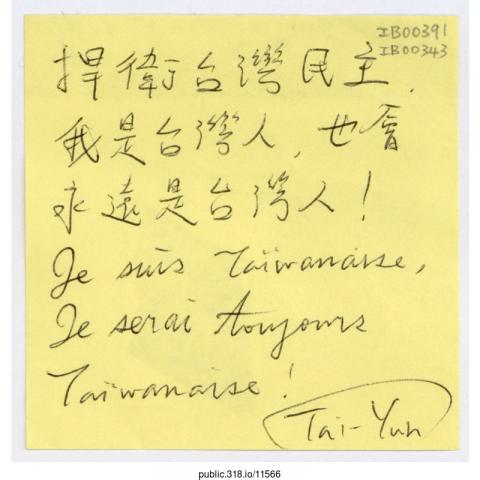 IB00391
IB00343
捍衛台灣民主，
我是台灣人，也會
永遠是台灣人！
Je suis Taïwanaise,
Je serai toujours
Taïwanaise !
Tai-Yun
public.318.io/11566